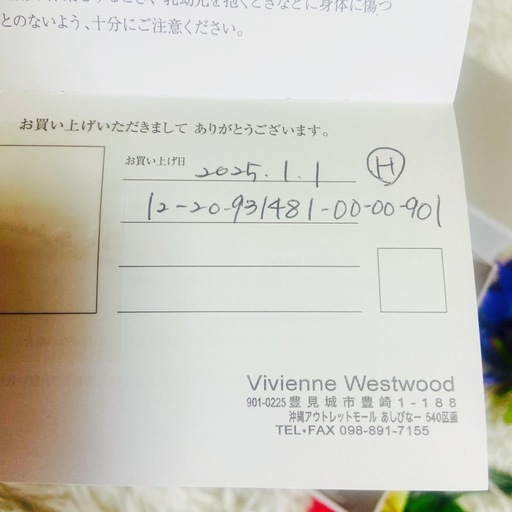 乳幼児を抱くときなどに身体に傷つ
とのないよう、十分にご注意ください。
お買い上げいただきまして ありがとうございます。
お買い上げ日 2025.1.1 H
12-20-931481-00-00-901
Vivienne Westwood
901-0225 豊見城市豊崎1-188
沖縄アウトレットモール あしびなー 540区画
TEL・FAX 098-891-7155